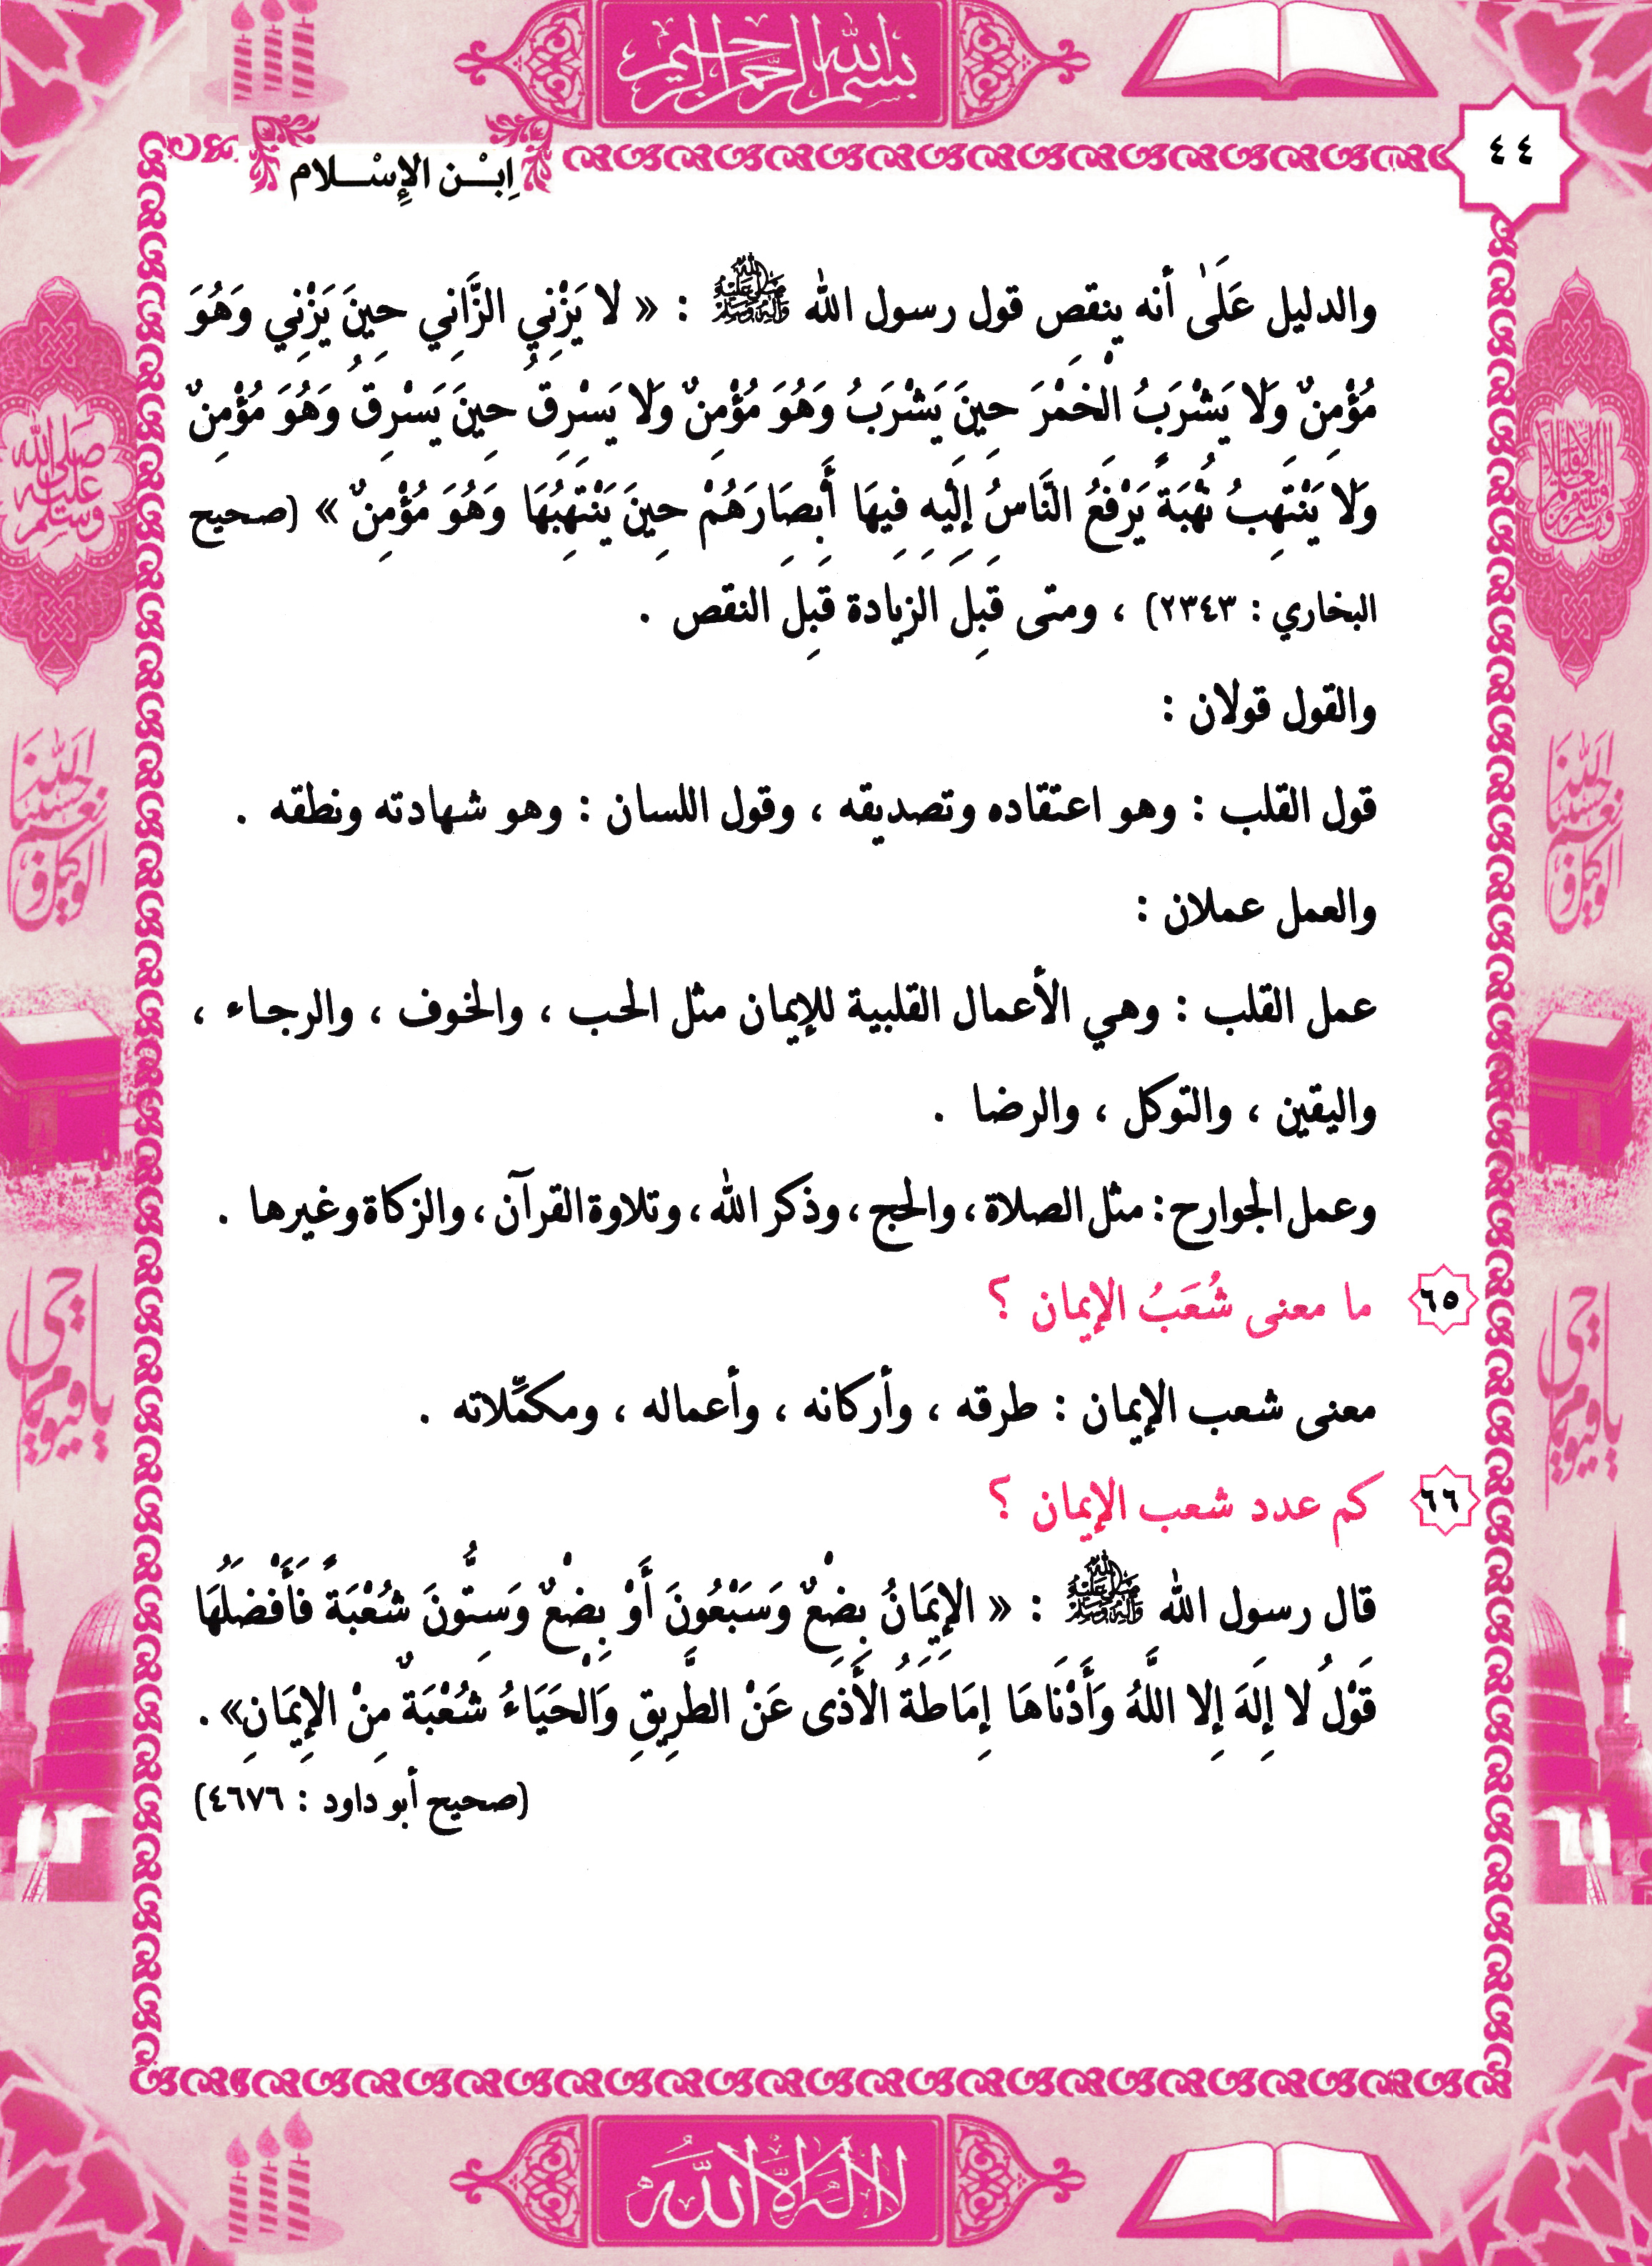 بسم الله الرحمن الرحيم
٤٤
اِبْـن الإِسْـلام
والدليل عَلَىٰ أنه ينقص قول رسول الله ﷺ : « لا يَزْنِي الزَّانِي حِينَ يَزْنِي وَهُوَ
مُؤْمِنٌ وَلا يَشْرَبُ الْخَمْرَ حِينَ يَشْرَبُ وَهُوَ مُؤْمِنٌ وَلا يَسْرِقُ حِينَ يَسْرِقُ وَهُوَ مُؤْمِنٌ
وَلا يَنْتَهِبُ نُهْبَةً يَرْفَعُ النَّاسُ إِلَيْهِ فِيهَا أَبصَارَهُمْ حِينَ يَنْتَهِبُهَا وَهُوَ مُؤْمِنٌ » (صحيح
البخاري : ٢٣٤٣) ، ومتى قَبِلَ الزيادة قَبِلَ النقص .
والقول قولان :
قول القلب : وهو اعتقاده وتصديقه ، وقول اللسان : وهو شهادته ونطقه .
والعمل عملان :
عمل القلب : وهي الأعمال القلبية للإيمان مثل الحب ، والخوف ، والرجاء ،
واليقين ، والتوكل ، والرضا .
وعمل الجوارح : مثل الصلاة ، والحج ، وذكر الله ، وتلاوة القرآن ، والزكاة وغيرها .
٦٥ ما معنى شُعَبُ الإيمان ؟
معنى شعب الإيمان : طرقه ، وأركانه ، وأعماله ، ومكمِّلاته .
٦٦ كم عدد شعب الإيمان ؟
قال رسول الله ﷺ : « الإِيمَانُ بِضْعٌ وَسَبْعُونَ أَوْ بِضْعٌ وَسِتُّونَ شُعْبَةً فَأَفْضَلُهَا
قَوْلُ لا إِلَهَ إِلا اللَّهُ وَأَدْنَاهَا إِمَاطَةُ الأَذَى عَنْ الطَّرِيقِ وَالْحَيَاءُ شُعْبَةٌ مِنْ الإِيمَانِ» .
(صحيح أبو داود : ٤٦٧٦)
لا إله إلا الله
صلى الله عليه وسلم
حسبنا الله ونعم الوكيل
يا حي يا قيوم
حسبنا الله ونعم الوكيل
يا حي يا قيوم